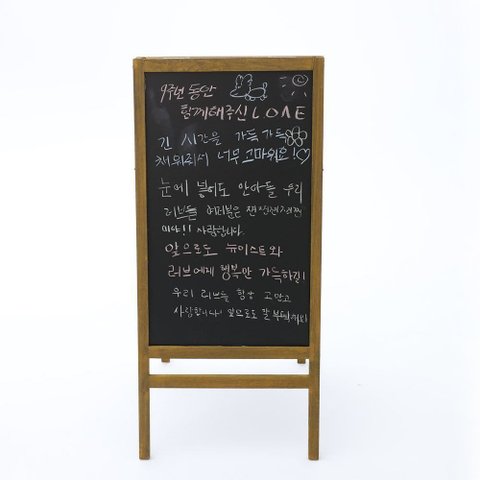 9주년 동안
함께해주신 L.O.Λ.E
긴 시간을 가득 가득
채워줘서 너무 고마워요!♡
눈에 넣어도 안아플 우리
러브들 여러분은 찐찐찐찐찐
이야!! 사랑합니다.
앞으로도 뉴이스트와
러브에게 행복만 가득하길!
우리 러브들 항상 고맙고
사랑합니다! 앞으로도 잘 부탁해요!